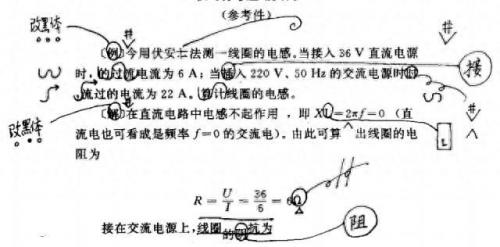 (参考件)
改黑体
[例]今用伏安法测一线圈的电感。当接入 36 V 直流电源
时,的过流电流为 6 A;当插入 220 V、50 Hz 的交流电源时
接
流过的电流为 22 A。算计线圈的电感。
改黑体
[解]在直流电路中电感不起作用,即 XL=2πf=0(直
流电也可看成是频率 f=0 的交流电)。由此可算出线圈的电
阻为
R = U/I = 36/6 = 6Ω
接在交流电源上,线圈的抗为
阻